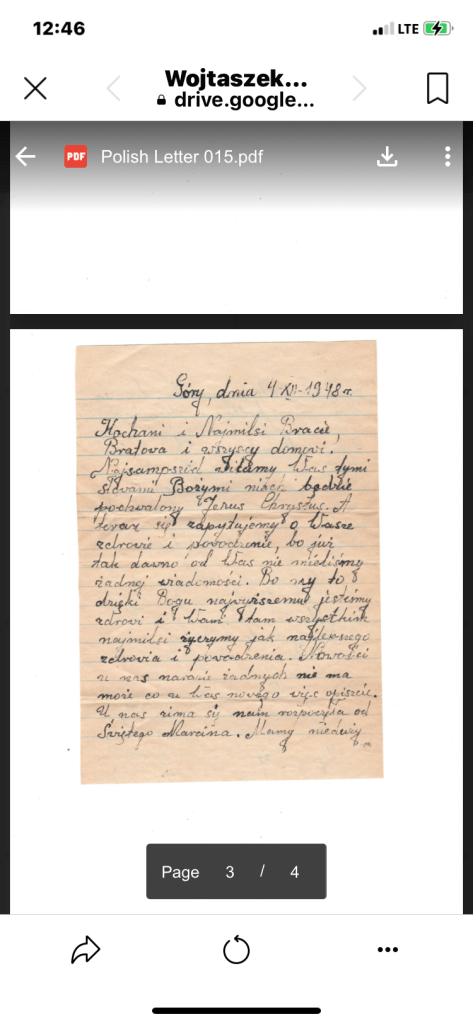 12:46
LTE
Wojtaszek...
drive.google...
PDF Polish Letter 015.pdf
Góry, dnia 4-XII-1948r.
Kochani i Najmilsi Bracie,
Bratova i wszyscy domovi.
Najsampszód witamy Was tymi
słovami Bożymi niách będzie
pochwalony Jezus Chrystus. A
teraz się zapytujemy o Wasze
zdrovie i povodzenie, bo już
tak dawno od Was nie mieliśmy
żadnej wiadomości. Bo my to
dzięki Bogu najwyższemu jesteśmy
zdrovi i Wam tam wszystkim
najmilsi życzymy jak najlepszego
zdrovia i povodzenia. Nowości
u nas narazie żadnych nie ma
może co u Was novego więc opiszcie.
U nas zima się nam rozpoczyła od
Świętego Marcina. Mamy
Page 3 / 4